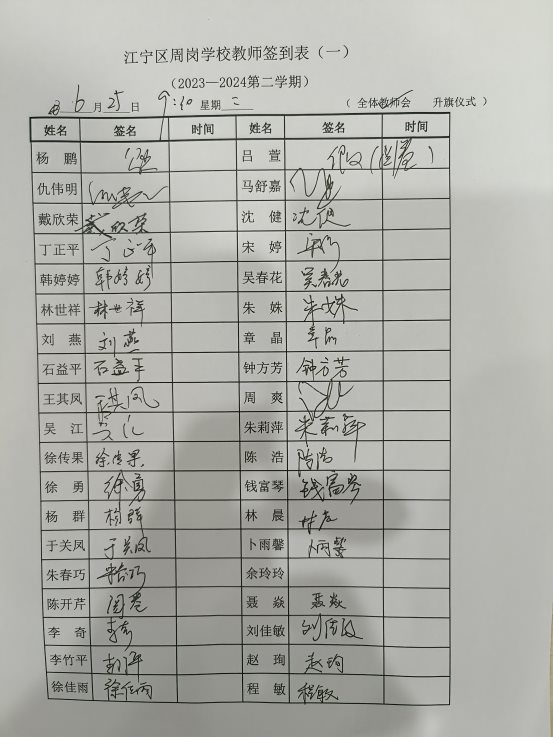 江宁区周岗学校教师签到表（一）
（2023—2024第二学期）
6月25日 9:10 星期二 （ 全体教师会 升旗仪式 ）
姓名 签名 时间 姓名 签名 时间
杨 鹏 吕 萱
仇伟明 马舒嘉
戴欣荣 戴欣荣 沈 健 沈健
丁正平 丁正平 宋 婷
韩婷婷 韩婷婷 吴春花 吴春花
林世祥 林世祥 朱 姝 朱姝
刘 燕 刘燕 章 晶 章晶
石益平 石益平 钟方芳 钟方芳
王其凤 王其凤 周 爽
吴 江 吴江 朱莉萍 朱莉萍
徐传果 徐传果 陈 浩 陈浩
徐 勇 徐勇 钱富琴 钱富琴
杨 群 杨群 林 晨
于关凤 于关凤 卜雨馨 卜雨馨
朱春巧 朱春巧 余玲玲
陈开芹 聂 焱 聂焱
李 奇 李奇 刘佳敏 刘佳敏
李竹平 赵 珣 赵珣
徐佳雨 徐佳雨 程 敏 程敏